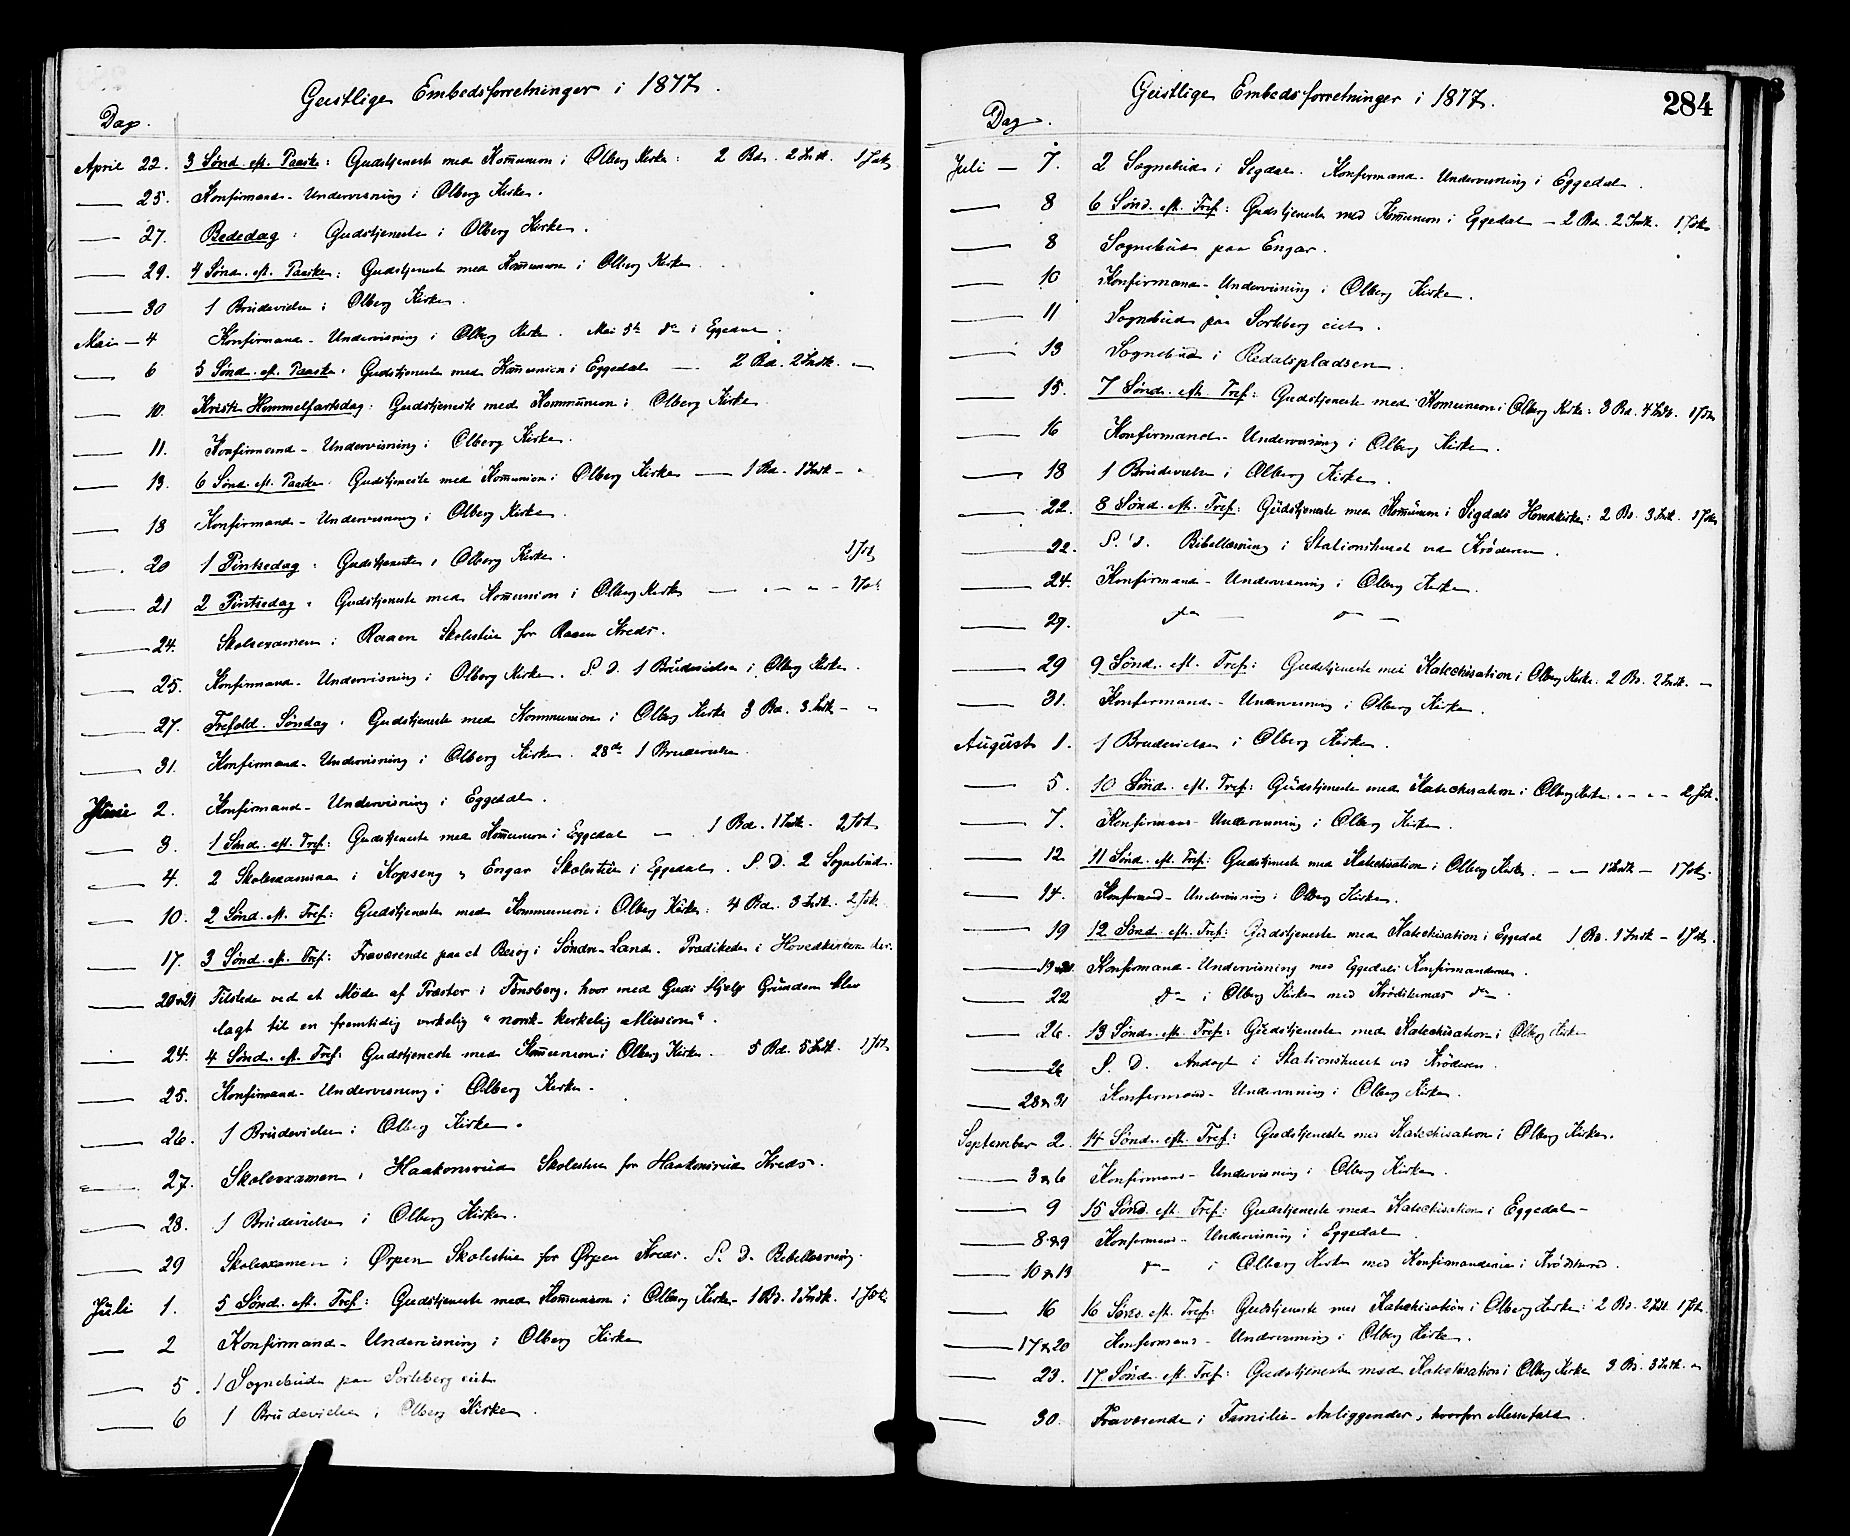 Geistlige Embedsforretninger i 1877.
Dag.
April 22. 3 Sønd. eft. Paaske: Gudstjeneste med Kom̄union i Olberg Kirke: 2 Bd. 2 Indt. 1 Jdk.
— 25. Konfirmand-Undervisning i Olberg Kirke.
— 27. Bededag: Gudstjeneste i Olberg Kirke.
— 29. 4 Sønd. eft. Paaske: Gudstjeneste med Kom̄union i Olberg Kirke.
— 30 1 Brudevielse i Olberg Kirke.
Mai — 4 Konfirmand-Undervisning i Olberg Kirke. Mai 5te do i Eggedal.
— 6 5 Sønd. eft. Paaske: Gudstjeneste med Kom̄union i Eggedal — 2 Bd. 2 Indt. —
— 10. Kristi Himmelfartsdag: Gudstjeneste med Kommunion i Olberg Kirke
— 11. Konfirmand-Undervisning i Olberg Kirke.
— 13. 6 Sønd. eft. Paaske: Gudstjeneste med Kom̄union i Olberg Kirke — 1 Bd. 1 Indt. — "
— 18 Konfirmand-Undervisning i Olberg Kirke.
— 20 1 Pintsedag: Gudstjeneste i Olberg Kirke. 1 Jdk
— 21 2 Pintsedag: Gudstjeneste med Kom̄union i Olberg Kirke — " — " — 1 Jdk
— 24. Skoleexamen i Raaen Skolestue for Raaen Kreds.
— 25. Konfirmand-Undervisning i Olberg Kirke. S. D. 1 Brudevielse i Olberg Kirke.
— 27. Trefold. Søndag: Gudstjeneste med Kommunion i Olberg Kirke 3 Bd. 3 Indt. — "
— 31. Konfirmand-Undervisning i Olberg Kirke. 28de 1 Brudevielse.
Juni 2. Konfirmand-Undervisning i Eggedal.
— 3. 1 Sønd. eft. Tref: Gudstjeneste med Kom̄union i Eggedal — 1 Bd. 1 Indt. 2 Jdk.
— 4. 2 Skoleexamina i Kopseng & Engar Skolestue i Eggedal. S. D. 2 Sognebud.
— 10. 2 Sønd. eft. Tref: Gudstjeneste med Kommunion i Olberg Kirke: 4 Bd. 3 Indt. 2 Jdk.
— 17. 3 Sønd. eft. Tref: Fraværende paa et Besøg i Søndre-Land. Prædikede i Hovedkirken der.
— 20 & 21 Tilstede ved et Møde af Præster i Tønsberg, hvor med Guds Hjelp Grunden blev
lagt til en fremtidig virkelig "norsk-kirkelig Mission".
— 24. 4 Sønd. eft. Tref: Gudstjeneste med Kom̄union i Olberg Kirke. 5 Bd. 5 Indt. 1 Jdk
— 25. Konfirmand-Undervisning i Olberg Kirke.
— 26. 1 Brudevielse i Olberg Kirke.
— 27. Skoleexamen i Haakonsrud Skolestue for Haakonsrud Kreds.
— 28. 1 Brudevielse i Olberg Kirke.
— 29 Skoleexamen i Ørpen Skolestue for Ørpen Kreds. S. D. Bibellæsning.
Juli 1. 5 Sønd. eft. Tref: Gudstjeneste med Kom̄union i Olberg Kirke - 1 Bd. 1 Indt. 1 Jdk
— 2 Konfirmand-Undervisning i Olberg Kirke
— 5. 1 Sognebud paa Sorteberg eiet
— 6 1 Brudevielse i Olberg Kirke.
Geistlige Embedsforretninger i 1877.
284
Dag.
Juli — 7. 2 Sognebud i Sigdal. Konfirmand-Undervisning i Eggedal.
— 8 6 Sønd. eft. Tref: Gudstjeneste med Kom̄union i Eggedal — 2 Bd. 2 Indt. 1 Jdk
— 8 Sognebud paa Engar.
— 10 Konfirmand-Undervisning i Olberg Kirke.
— 11 Sognebud paa Sorteberg eiet.
— 13 Sognebud i Redalspladsen.
— 15. 7 Sønd. eft. Tref: Gudstjeneste med Kom̄union i Olberg Kirke: 3 Bd. 4 Indt. 1 Jdk
— 16 Konfirmand-Undervisning i Olberg Kirke.
— 18 1 Brudevielse i Olberg Kirke.
— 22. 8 Sønd. eft. Tref: Gudstjeneste med Kom̄union i Sigdals Hovedkirke: 2 Bd. 3 Indt. 1 Jdk
— 22. S. D. Bibellæsning i Stationshuset ved Krøderen.
— 24. Konfirmand-Undervisning i Olberg Kirke.
— 27. do — do —
— 29 9 Sønd. eft. Tref: Gudstjeneste med Katechisation i Olberg Kirke. 2 Bd. 2 Indt. —
— 31. Konfirmand-Undervisning i Olberg Kirke.
August 1. 1 Brudevielse i Olberg Kirke.
— 5. 10 Sønd. eft. Tref: Gudstjeneste med Katechisation i Olberg Kirke: — " — 2 Jdk.
— 7. Konfirmand-Undervisning i Olberg Kirke.
— 12 11 Sønd. eft. Tref: Gudstjeneste med Katechisation i Olberg Kirke. — " 1 Indt — 1 Jdk.
— 14. Konfirmand-Undervisning i Olberg Kirke.
— 19 12 Sønd. eft. Tref: Gudstjeneste med Katechisation i Eggedal 1 Bd. 1 Indt — 1 Jdk.
— 19 & 20. Konfirmand-Undervisning med Eggedals Konfirmanderne.
— 22 do i Olberg Kirke med Krødskernes do.
— 26. 13 Sønd. eft. Tref: Gudstjeneste med Katechisation i Olberg Kirke
— 26 S. D. Andagt i Stationshuset ved Krøderen.
— 28 & 31 Konfirmand-Undervisning i Olberg Kirke.
September 2. 14 Sønd. eft. Tref: Gudstjeneste med Katechisation i Olberg Kirke.
— 3 & 6 Konfirmand-Undervisning i Olberg Kirke.
— 9 15 Sønd. eft. Tref: Gudstjeneste med Katechisation i Eggedal —
— 8 & 9 Konfirmand-Undervisning i Eggedal.
— 10 & 13 do i Olberg Kirke med Konfirmanderne i Krødsherred.
— 16 16 Sønd. eft. Tref: Gudstjeneste med Katechisation i Olberg Kirke: 2 Bd. 2 Indt. 1 Jdk.
— 17 & 20 Konfirmand-Undervisning i Olberg Kirke.
— 23. 17 Sønd. eft. Tref: Gudstjeneste med Katechisation i Olberg Kirke 3 Bd. 3 Indt. "
— 30. Fraværende i Familie-Anliggender, hvorfor Messefald.